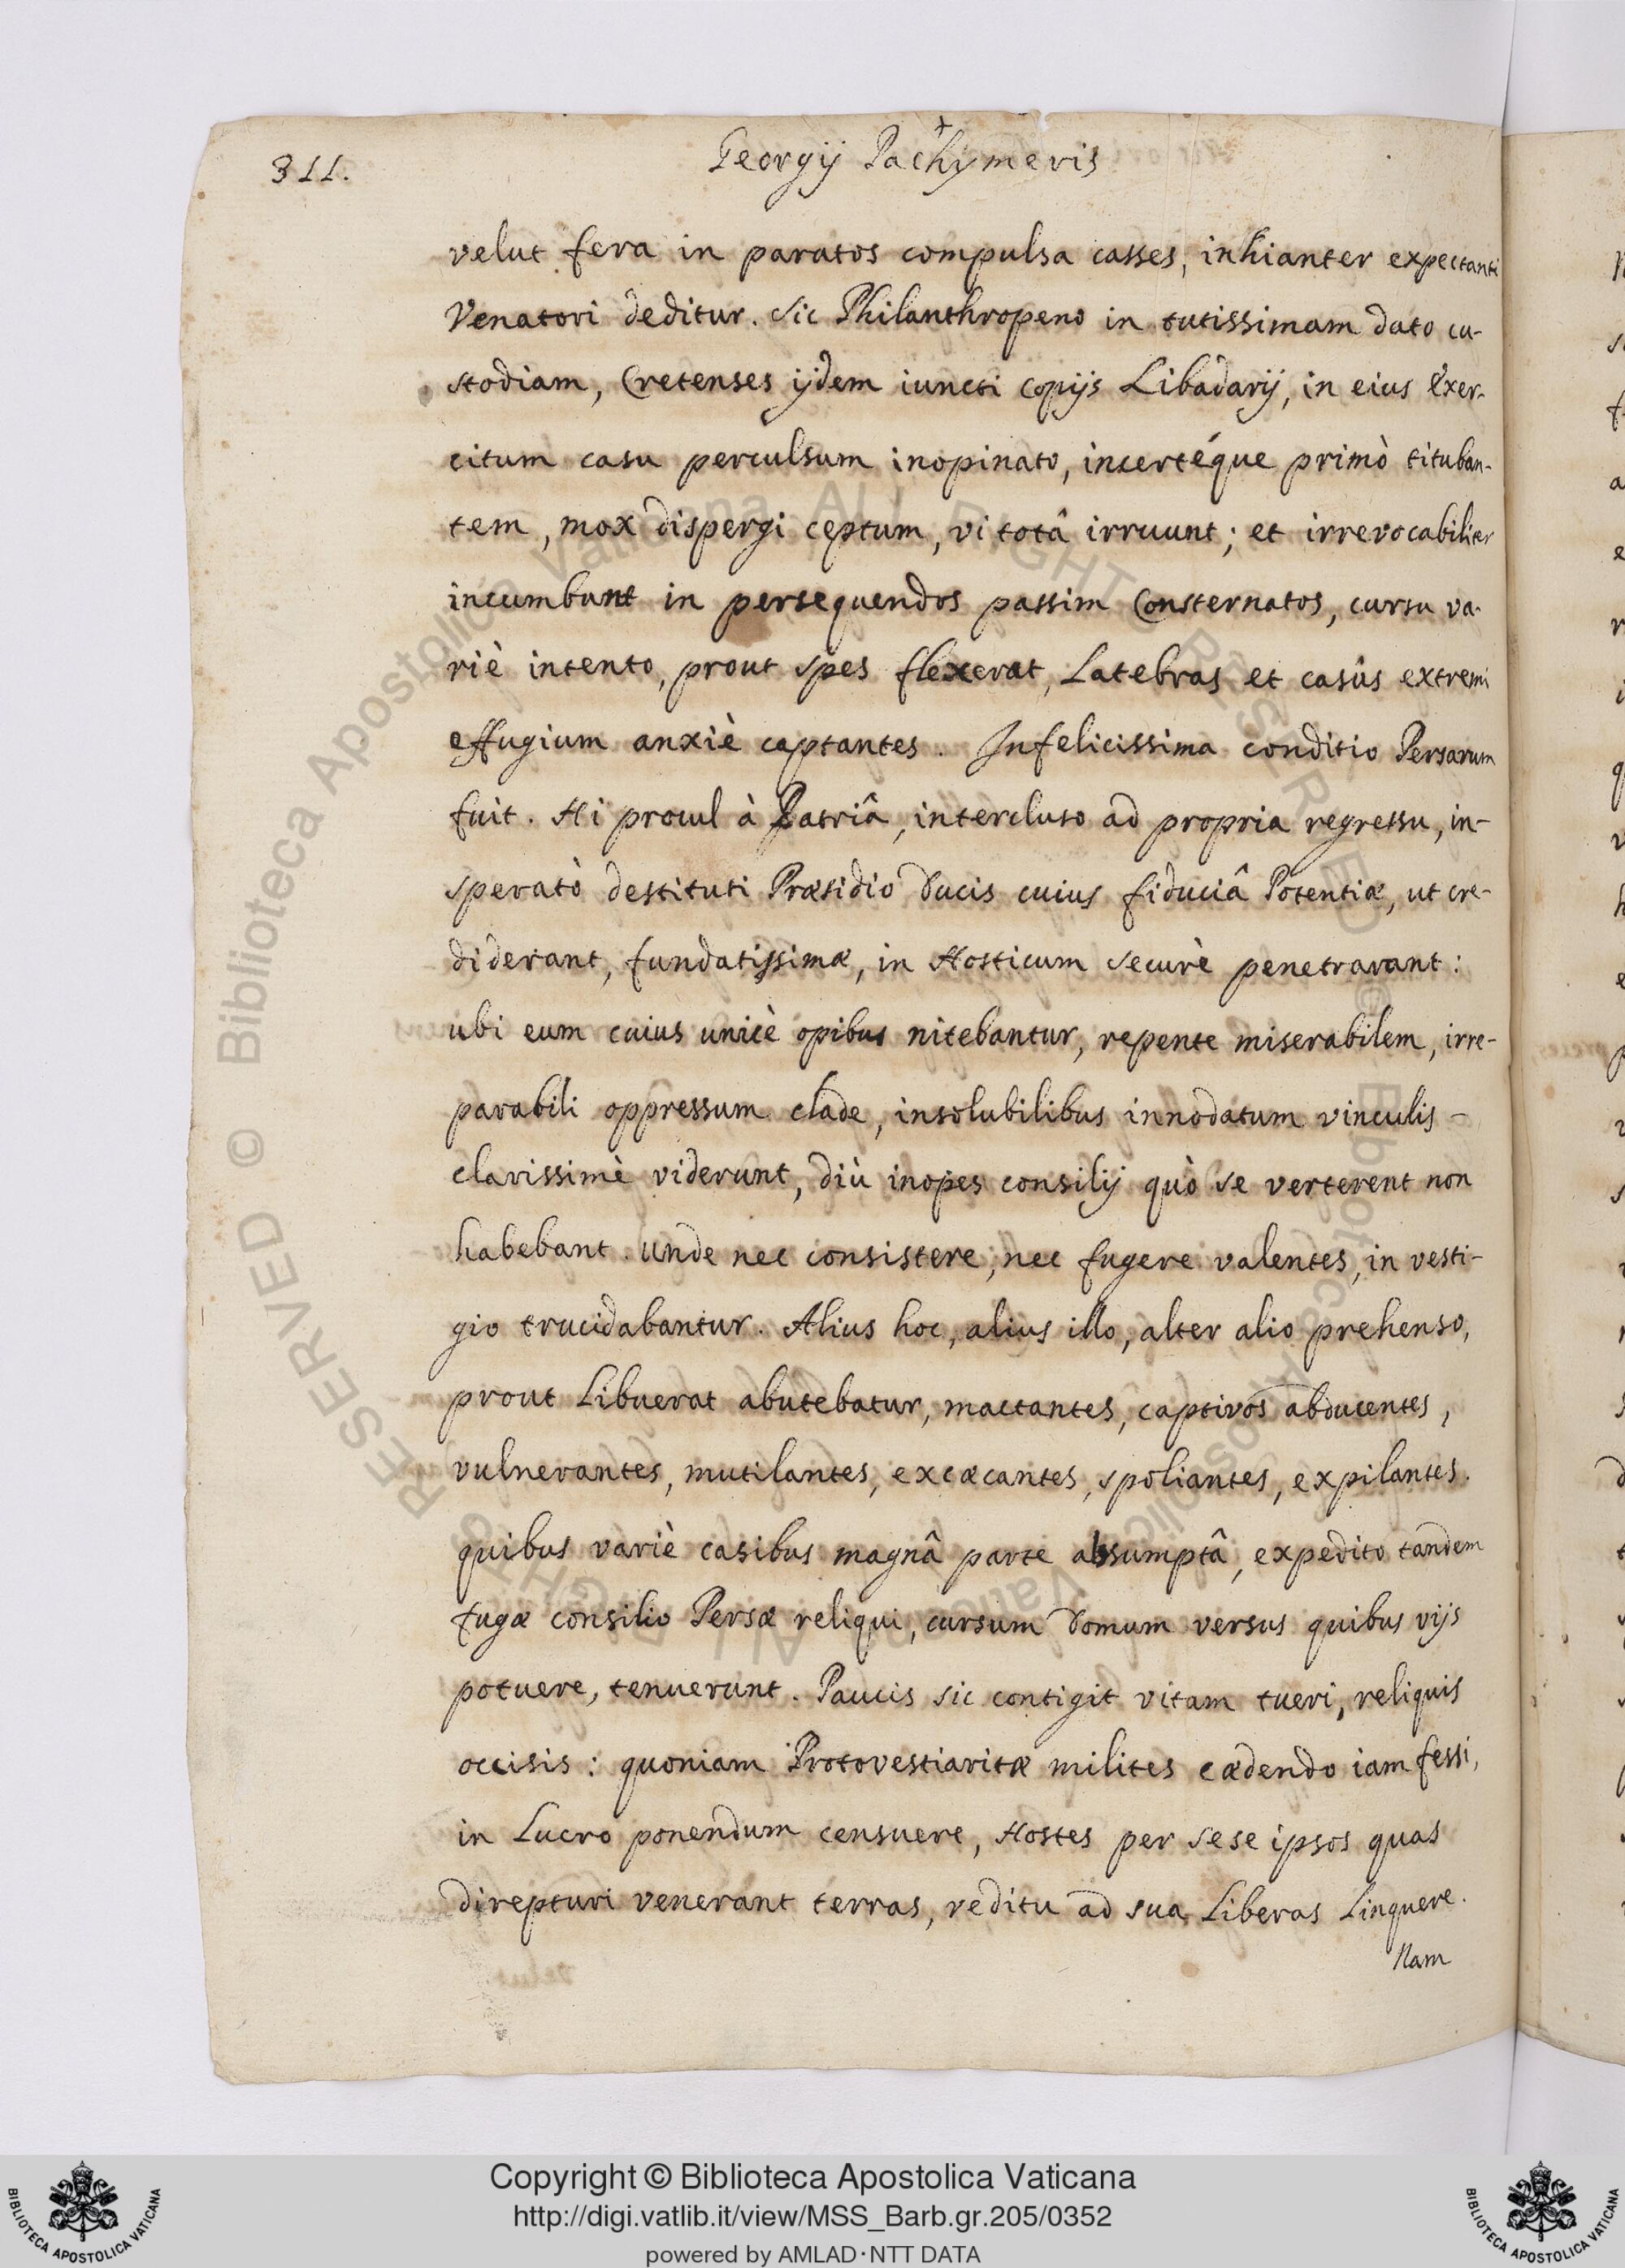 311.
Georgij Pachymeris
velut fera in paratos compulsa casses, inhianter expectanti
Venatori deditur. Sic Philanthropeno in tutissimam dato cu-
stodiam, Cretenses ijdem iuncti copijs Libadarij, in eius Exer-
citum casu perculsum inopinato, incertéque primò tituban-
tem, mox dispergi cęptum, vi totâ irruunt; et irrevocabiliter
incumbunt in persequendos passim Consternatos, cursu va-
riè intento, prout spes flexerat, Latebras et casûs extremi
effugium anxiè captantes. Infelicissima conditio Persarum
fuit. Hi procul à Patriâ, intercluso ad propria regressu, in-
speratò destituti Præsidio Ducis cuius fiduciâ Potentiæ, ut cre-
diderant, fundatissimæ, in Hosticum securè penetrarant:
ubi eum cuius unicè opibus nitebantur, repente miserabilem, irre-
parabili oppressum clade, insolubilibus innodatum vinculis -
clarissimè viderunt, diù inopes consilij quò se verterent non
habebant. Unde nec consistere, nec fugere valentes, in vesti-
gio trucidabantur. Alius hoc, alius illo, alter alio prehenso,
prout Libuerat abutebatur, mactantes, captivos abducentes,
vulnerantes, mutilantes, excæcantes, spoliantes, expilantes.
quibus variè casibus magnâ parte absumptâ, expedito tandem
fugæ consilio Persæ reliqui, cursum Domum versus quibus vijs
potuere, tenuerunt. Paucis sic contigit vitam tueri, reliquis
occisis: quoniam Protovestiaritæ milites cædendo iam fessi,
in Lucro ponendum censuere, Hostes per sese ipsos quas
direpturi venerant terras, reditu ad sua Liberas Linquere.
Nam
Copyright © Biblioteca Apostolica Vaticana
http://digi.vatlib.it/view/MSS_Barb.gr.205/0352
powered by AMLAD·NTT DATA
BIBLIOTECA APOSTOLICA VATICANA
BIBLIOTECA APOSTOLICA VATICANA